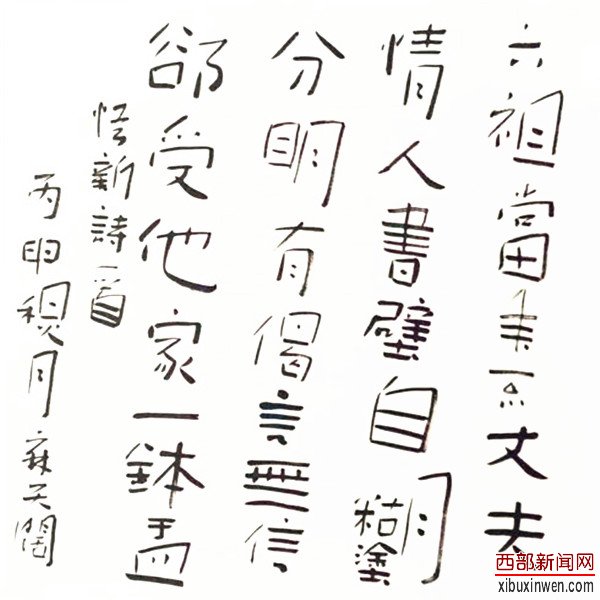 六祖當年不丈夫
情人書壁自糊塗
分明有偈言無信
卻受他家一鉢盂
悟新詩一首
丙申月麻天闊
西部新闻网
xibuxinwen.com